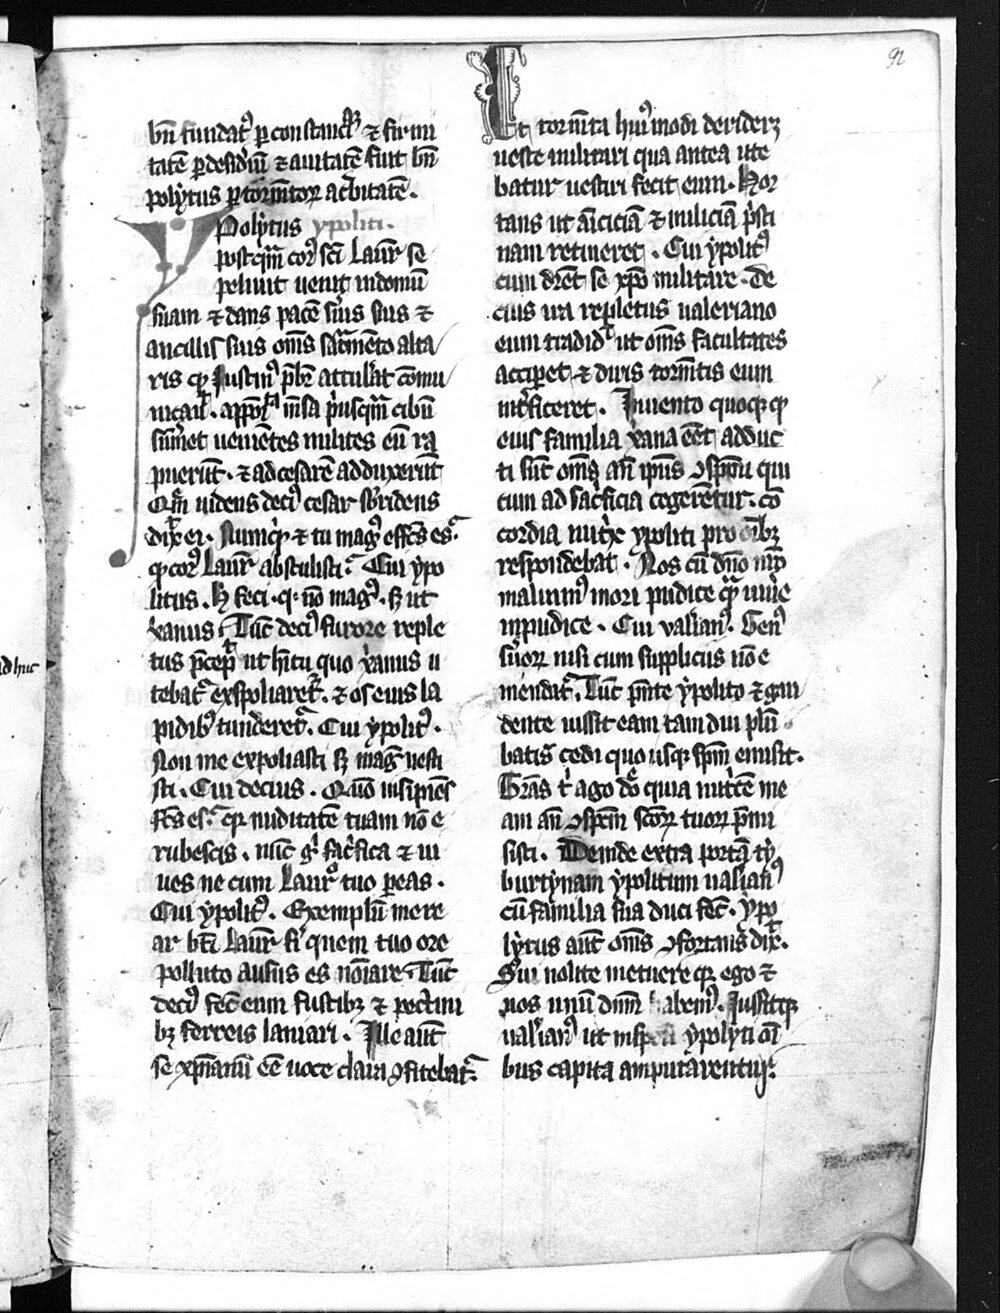 92
bn̄ fundatꝰ ꝑ constanciā ⁊ firmi
tatē ꝑ desid̓iū ⁊ auitatē fuit bn̄
polẏtus ꝑ tormētoꝝ ac̓bitatē.
Ypolẏtus ypoliti.
postꝙ̄ corꝰ sc̄i Laur̄ se
peliuit uenit in domū
suam ⁊ dans pacē s̓uis suis ⁊
ancillis suis om̄s sac̓mēto alta
ris qꝫ Justinꝰ p̄br̄ attul̓at cōmu
nicauit. appoīta m̄sa p̓usꝙ̄ cibū
sūmet ueniētes milites eū ra
puerūt. ⁊ ad cesarē adduxerūt
Quē uidens deciꝰ cesar sb̓ridens
dix̄ ei. Numqꝫ ⁊ tu magꝰ effc̄s es
qꝫ corꝰ Laur̄ abstulisti. Cui ypo
litus. H̓ feci. qꝫ nō magꝰ. sꝫ ut
x̓anus. Tūc deciꝰ furore reple
tus p̄cep̄ ut h̄itu quo x̓anus u
tebat᷑ exspoliaret᷑. ⁊ os eius la
pidibꝰ tunderet᷑. Cui ẏpolitꝰ.
Non me expoliasti sꝫ mag̓ uesti
sti. Cui decius. Quō insipiēs
fc̄s es. qꝫ nuditatē tuam nō e
rubescis. nūc g̓ sac̓fica ⁊ ui
ues ne cum Laur̄o tuo ꝑeas.
Cui ẏpolitꝰ. Exemplū mere
ar bt̄i Laur̄ fi̓ quem tuo ore
polluto ausus es nōiare. Tūc
deciꝰ fec̄ eum fustibꝫ ⁊ pectini
bꝫ ferreis laniari. Ille aūt
se xp̄ianū eē uoce clara ꝯfitebat᷑.
Et tormēta hiꝰmodi deridēꝫ
ueste militari qua antea ute
batur uestiri fecit eum. Hor
tans ut am̄iciciā ⁊ miliciā p̓sti
nam retineret. Cui ẏpolitꝰ
cum dr̄et se xp̄o militare. de
cius ira repletus ualeriano
eum tradid̄ ut om̄s facultates
acciꝑet ⁊ diris tormētis eum
int̓ficeret. Inuento quoqꝫ qꝫ
eius familia x̓ana eēt adduc
ti sūt om̄s añ ip̄iꝰ ꝯspcm̄ qui
cum ad sac̓ficia cogerētur. cō
cordia nut̓x ypoliti pro oībꝫ
respondebat. Nos cū dn̄o nr̄o
malumꝰ mori pudice ꝙ̄ uiu̓e
inpudice. Cui val̓ianꝰ. Genꝰ
s̓uoꝝ nisi cum suppliciis nō e
mendat᷑. Tūc p̄nte ẏpolito ⁊ gau
dente iussit eam tam diu plū
batis cedi quousqꝫ sp̄m emisit.
Gr̄as t̓ ago dn̄e quia nut̓cē me
am añ ꝯspcm̄ sc̄oꝝ tuoꝝ p̄mi
sisti. Deinde extra portā tẏ
burtẏnam ẏpolitum ual̓ianꝰ
cū familia sua duci fec̄. ẏpo
lẏtus aūt om̄s ꝯfortans dix̄.
Sui nolite metuere qꝫ ego ⁊
uos unū dn̄m habemꝰ. Jussitqꝫ
ual̓ianꝰ ut ẏpolẏti oī
bus capita amputarentur.